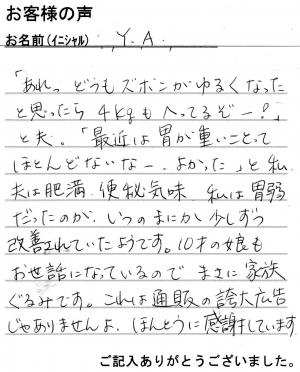 お客様の声
お名前(イニシャル) Y.A.
「あれっ どうもズボンがゆるくなった
と思ったら 4kgもへってるぞー!」
と夫。「最近は胃が重いことって
ほとんどないなー。よかった」と私
夫は肥満、便秘気味 私は胃弱
だったのが、いつのまにか少しずつ
改善されていたようです。10才の娘も
お世話になっているので まさに家族
ぐるみです。これは通販の誇大広告
じゃありませんよ。ほんとうに感謝しています
ご記入ありがとうございました。